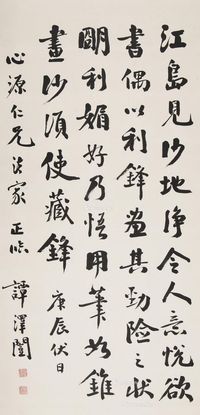 江島見沙地淨令人意悅欲
書偶以利鋒畫其勁險之狀
明利媚好乃悟用筆如錐
畫沙須使藏鋒 庚辰伏日
心源仁兄法家正臨 譚澤闓